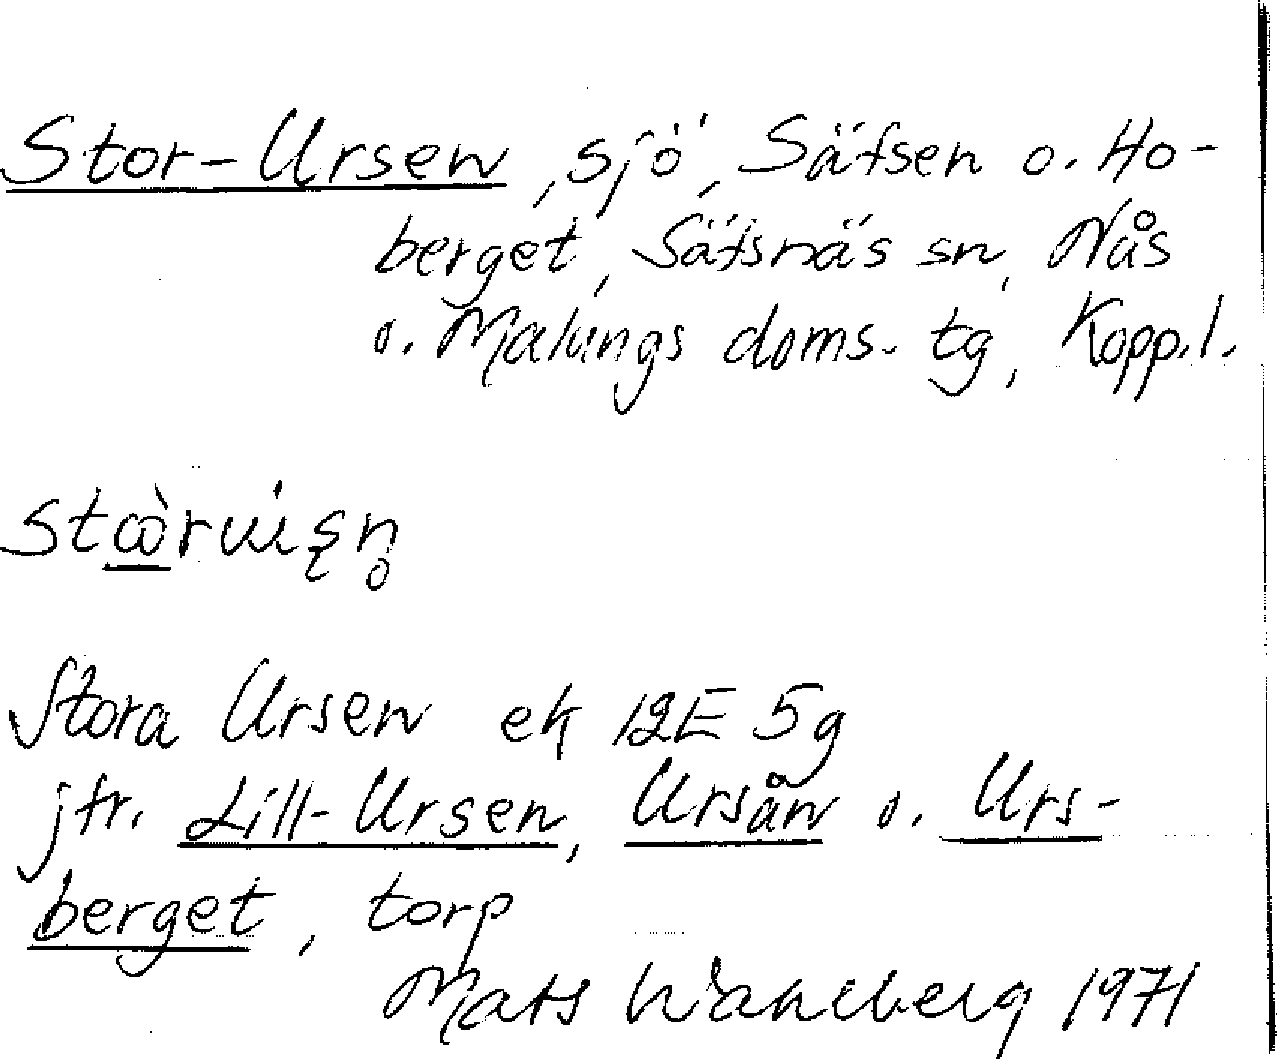 Stor-Ursen, sjö, Säfsen o. Ho-
berget, Säfsnäs sn, Nås
o. Malungs doms. tg, Kopp.l.
Stora Ursen ek 12E 5g
jfr. Lill-Ursen, Ursån o. Urs-
berget, torp
Mats Wahlberg 1971